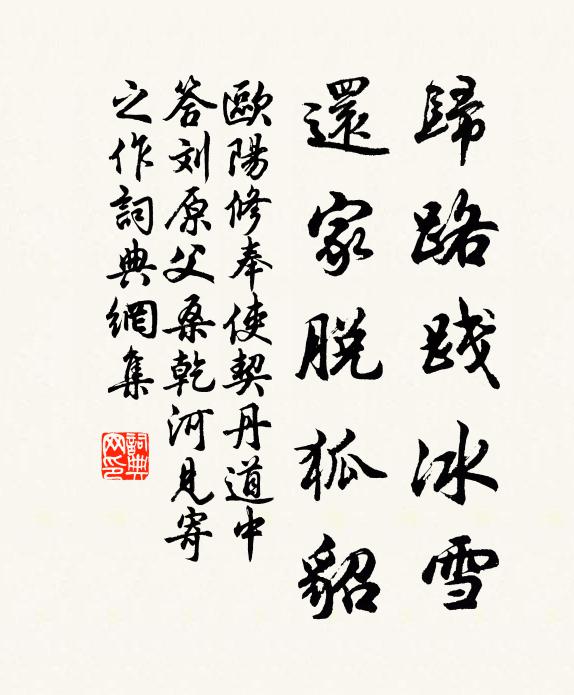 歸路踐冰雪
還家脫狐貂
歐陽修奉使契丹道中
答刘原父桑乾河見寄
之作詞典網集
詞典網印